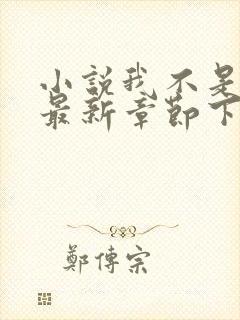 小説我不是
最新章節下
鄭傳宗